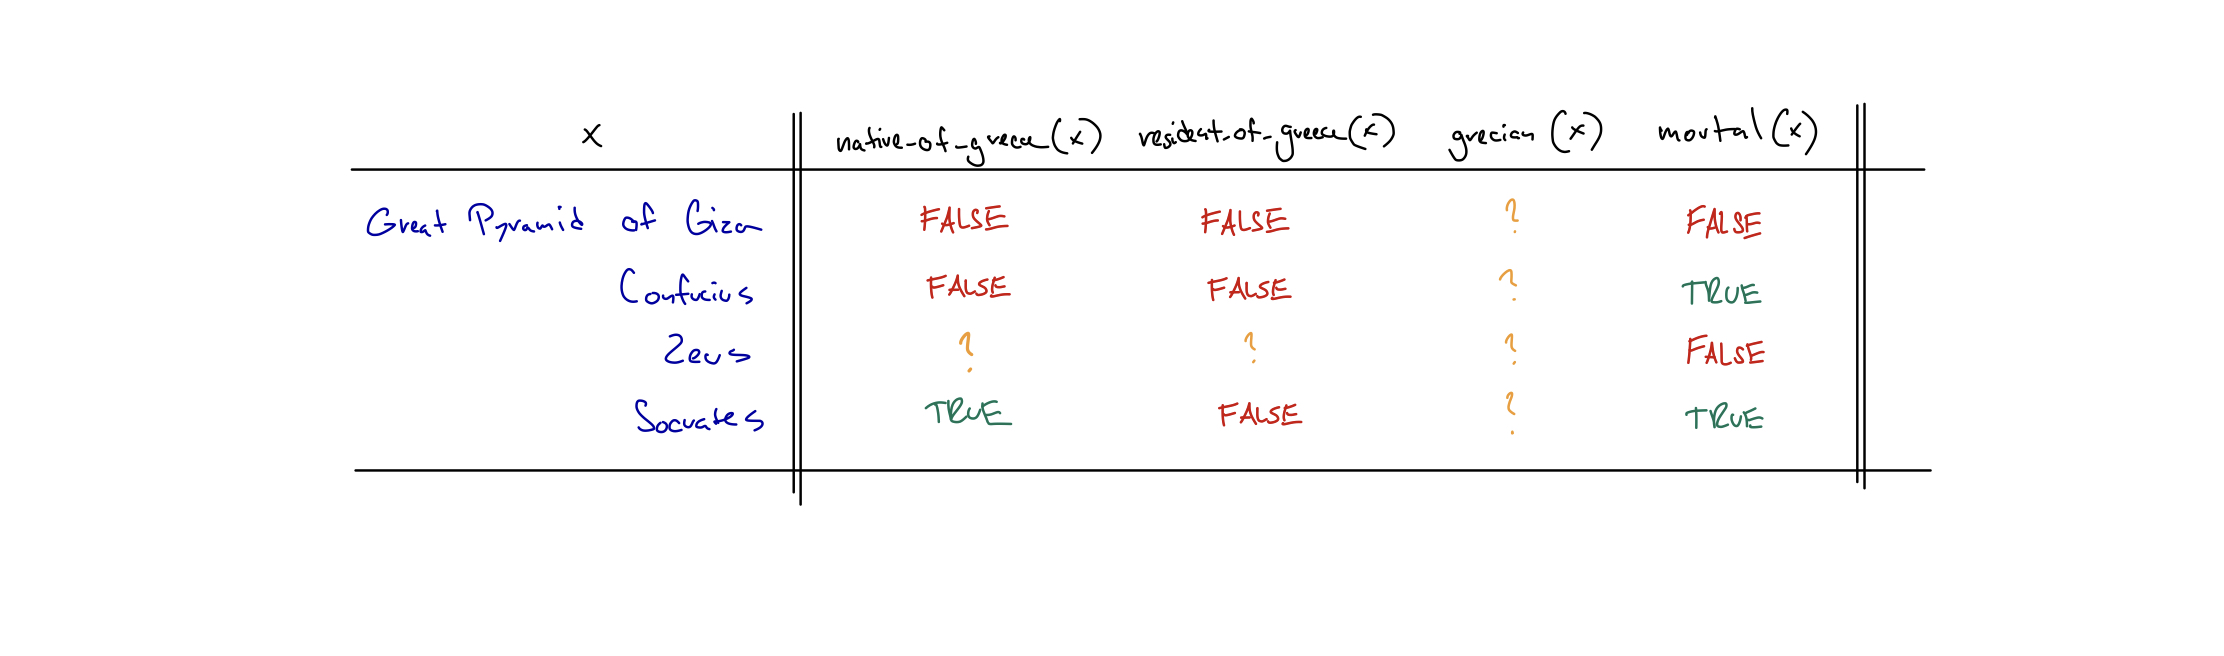 x native-of-greece(x) resident-of-greece(x) grecian (x) mortal (x)
Great Pyramid of Giza FALSE FALSE ? FALSE
Confucius FALSE FALSE ? TRUE
Zeus ? ? ? FALSE
Socrates TRUE FALSE ? TRUE